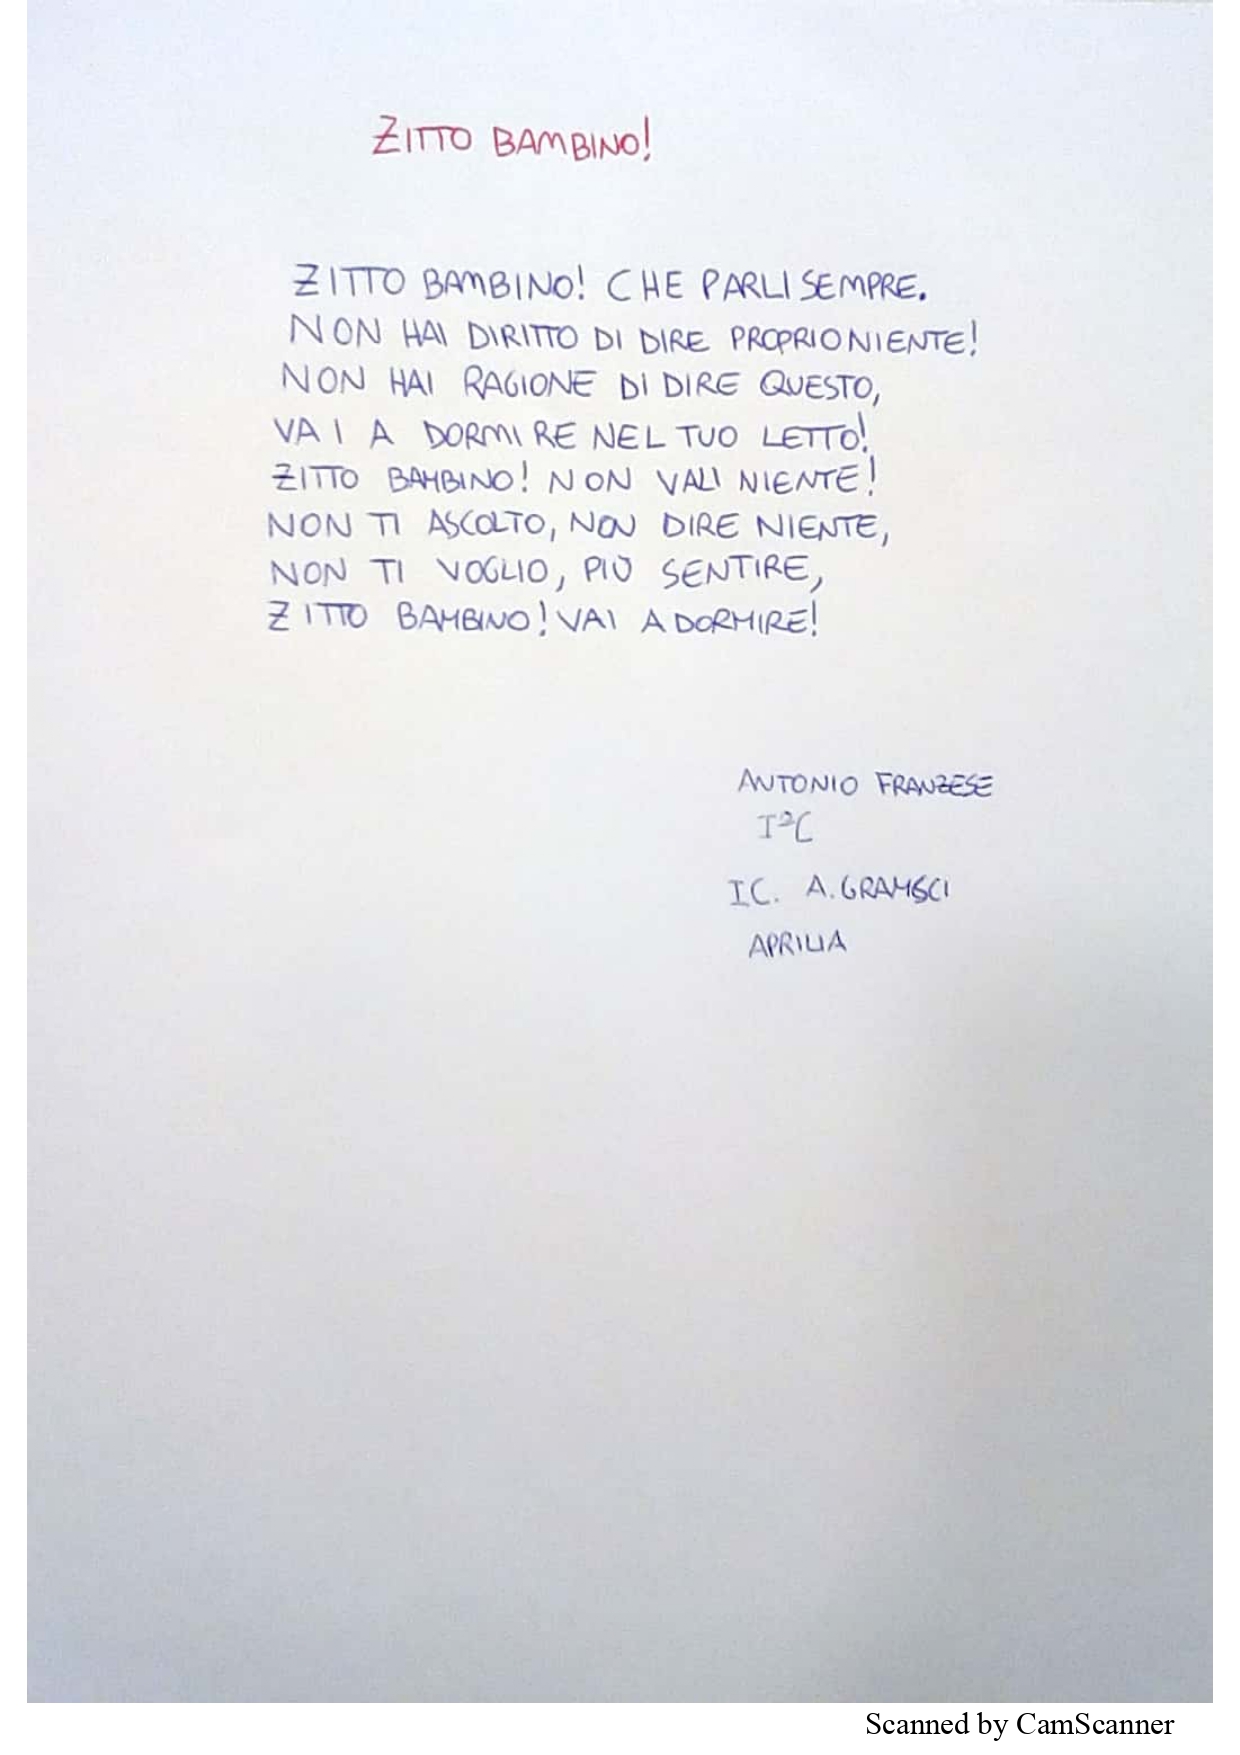 ZITTO BAMBINO!
ZITTO BAMBINO! CHE PARLI SEMPRE.
NON HAI DIRITTO DI DIRE PROPRIO NIENTE!
NON HAI RAGIONE DI DIRE QUESTO,
VAI A DORMIRE NEL TUO LETTO!
ZITTO BAMBINO! NON VALI NIENTE!
NON TI ASCOLTO, NON DIRE NIENTE,
NON TI VOGLIO, PIÙ SENTIRE,
ZITTO BAMBINO! VAI A DORMIRE!
ANTONIO FRANZESE
I²C
I.C. A. GRAMSCI
APRILIA
Scanned by CamScanner